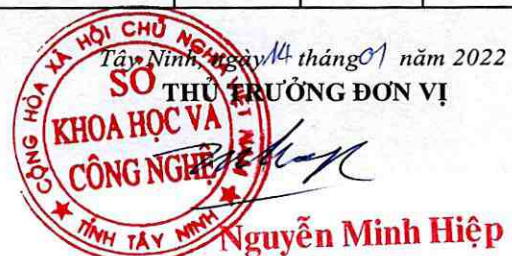 Tây Ninh, ngày 14 tháng 01 năm 2022
THỦ TRƯỞNG ĐƠN VỊ
CỘNG HÒA XÃ HỘI CHỦ NGHĨA VIỆT NAM
SỞ
KHOA HỌC VÀ
CÔNG NGHỆ
TỈNH TÂY NINH
Nguyễn Minh Hiệp